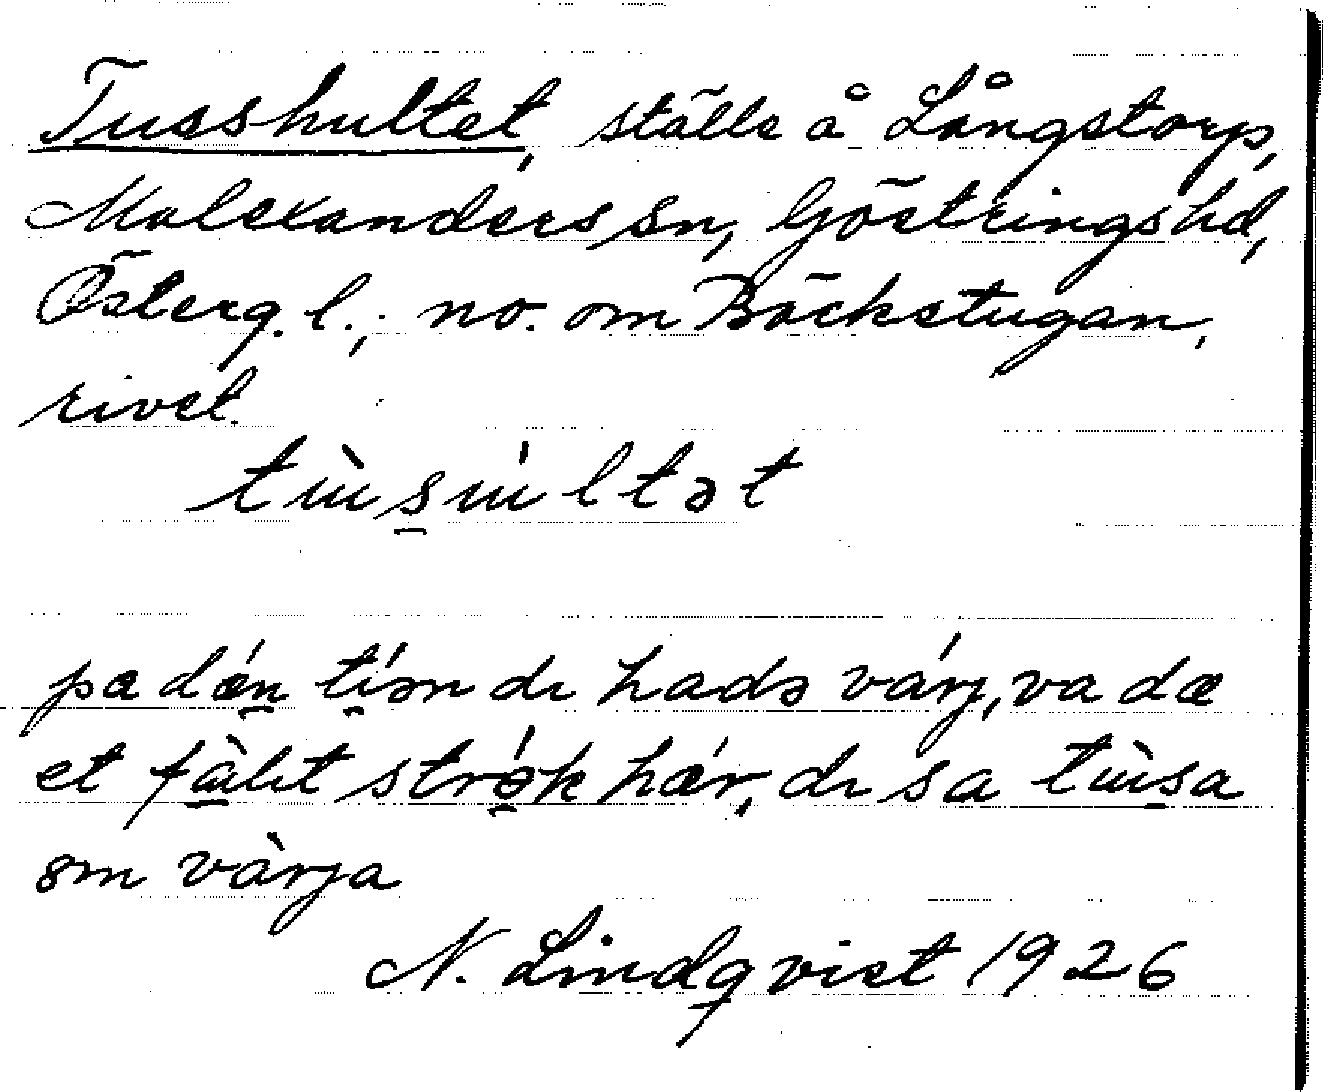 Tusshultet, ställe å Långstorp,
Malexanders sn, Göstrings hd,
Österg. l.; no. om Bäckstugan,
rivet.
tùsúltət
pa dǽn tím dı hadə várj, va dæ
et fàlıt strǿk hǽr, dı sa tùsa
əm vàrja
N. Lindqvist 1926